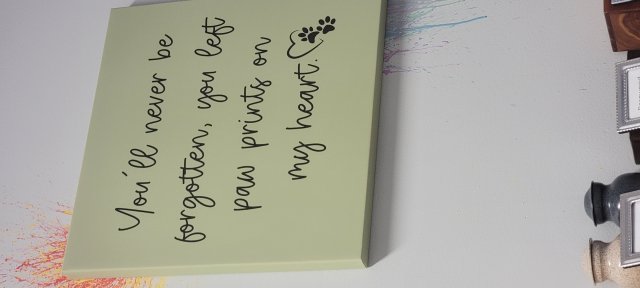 You'll never be
forgotten, you left
paw prints on
my heart.